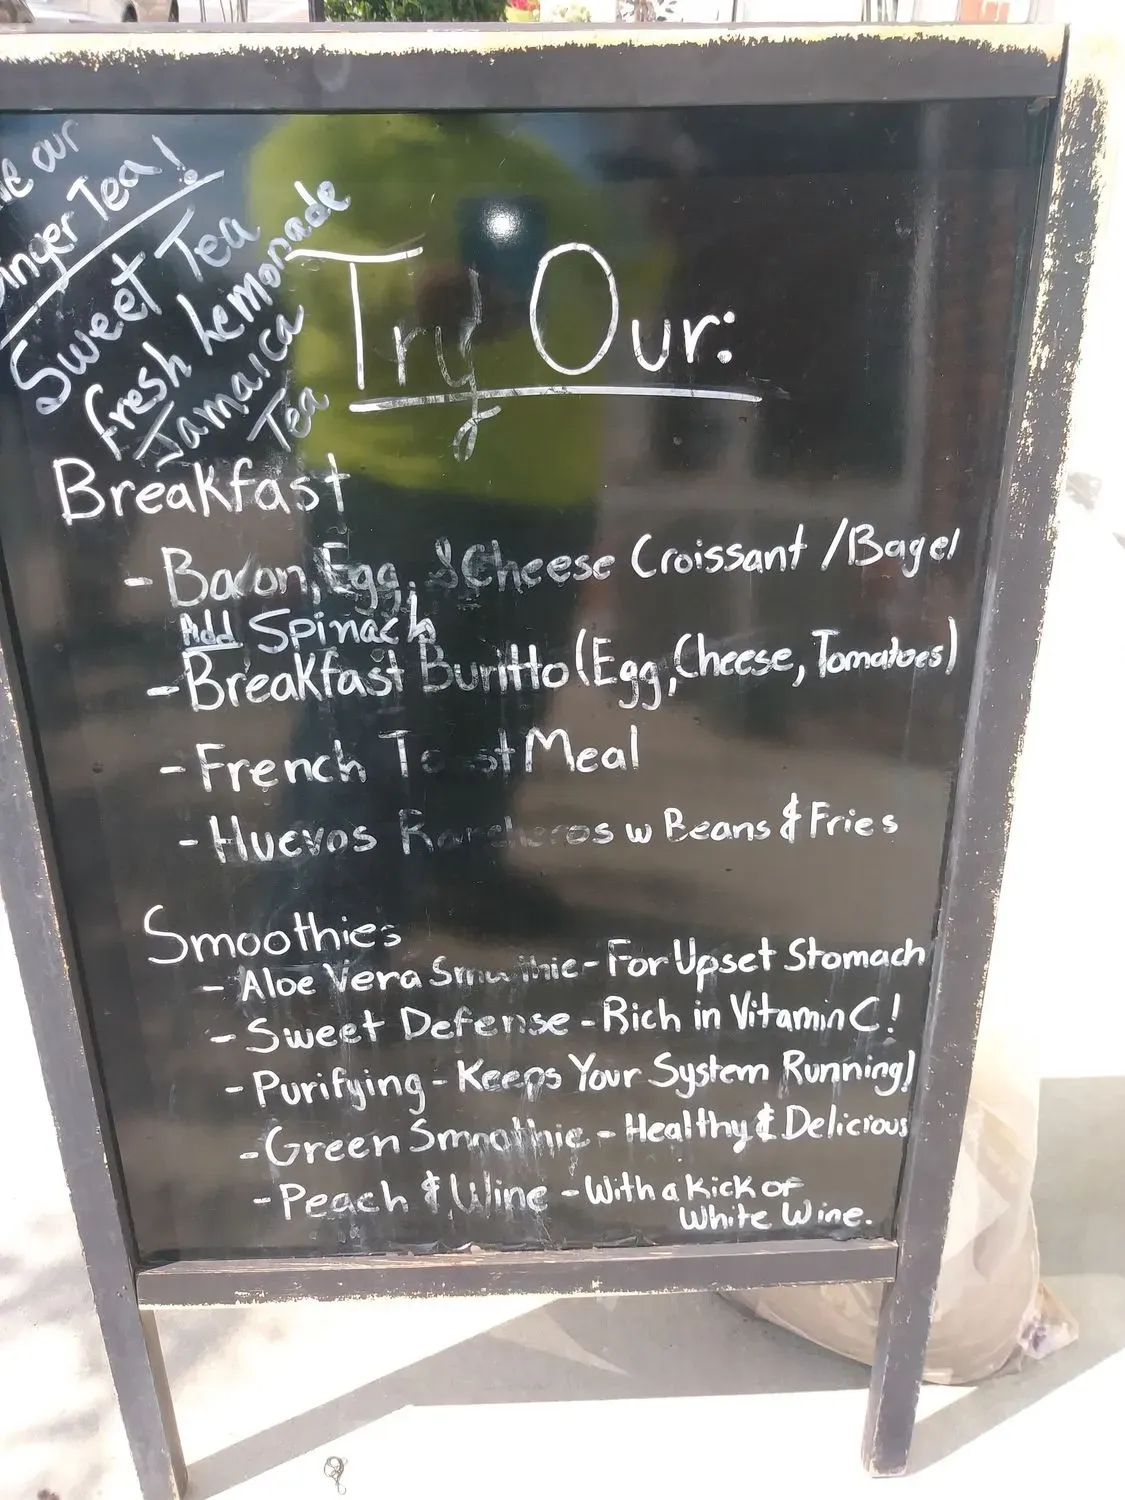 our
Tea!
Sweet Tea
fresh Lemonade
Jamaica
Tea
Try Our:
Breakfast
- Bacon, Egg, & Cheese Croissant / Bagel
Add Spinach
- Breakfast Buritto (Egg, Cheese, Tomatoes)
- French Toast Meal
- Huevos Rancheros w Beans & Fries
Smoothies
- Aloe Vera Smoothie - For Upset Stomach
- Sweet Defense - Rich in Vitamin C!
- Purifying - Keeps Your System Running!
- Green Smoothie - Healthy & Delicious
- Peach & Wine - With a Kick of
White Wine.